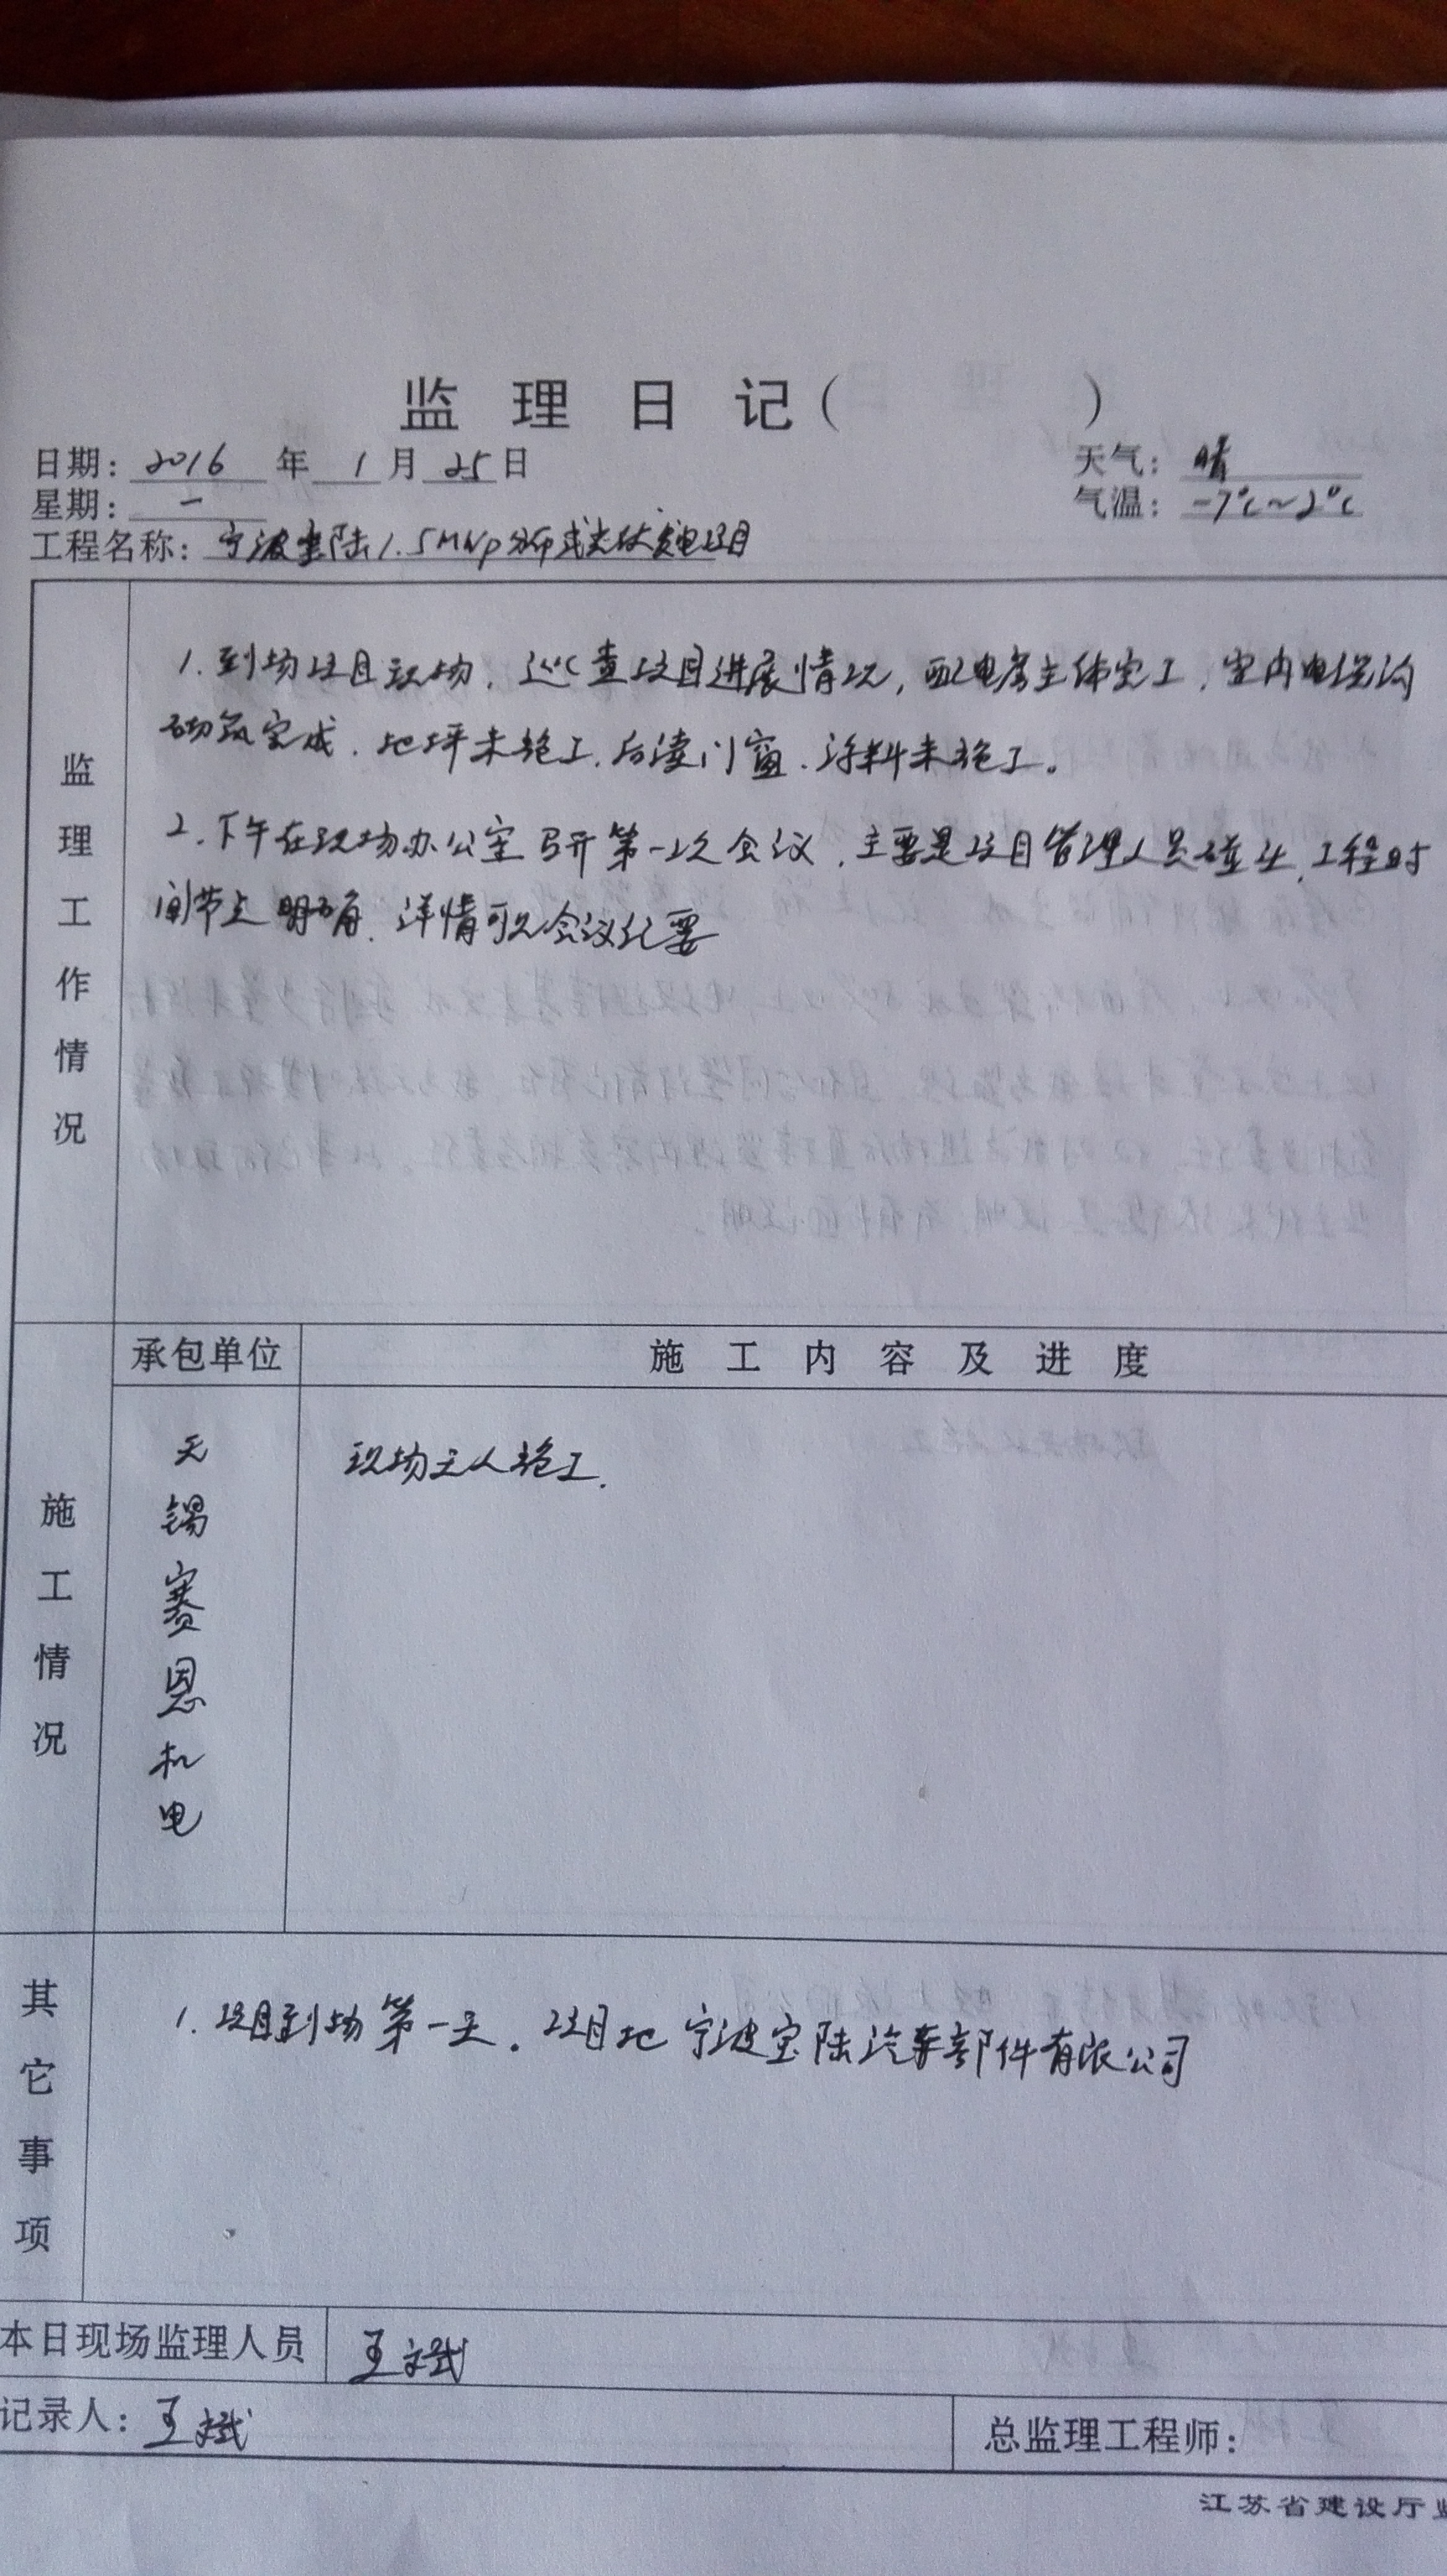 监 理 日 记 (                )
日期: 2016 年 1 月 25 日 天气: 晴
星期: 一 气温: -7℃~2℃
工程名称: 宁波宝陆1.5MWp分布式光伏发电项目
监理工作情况
1.到场项目现场,巡查项目进展情况,配电房主体完工,室内电缆沟
砌筑完成.地坪未施工.后续门窗.涂料未施工。
2.下午在现场办公室召开第一次会议,主要是项目管理人员碰头,工程时
间节点明确.详情可见会议纪要
施工情况
承包单位 施 工 内 容 及 进 度
无锡赛恩机电
现场无人施工.
其它事项
1.项目到场第一天.项目地 宁波宝陆汽车部件有限公司
本日现场监理人员 王斌
记录人: 王斌 总监理工程师:
江苏省建设厅监